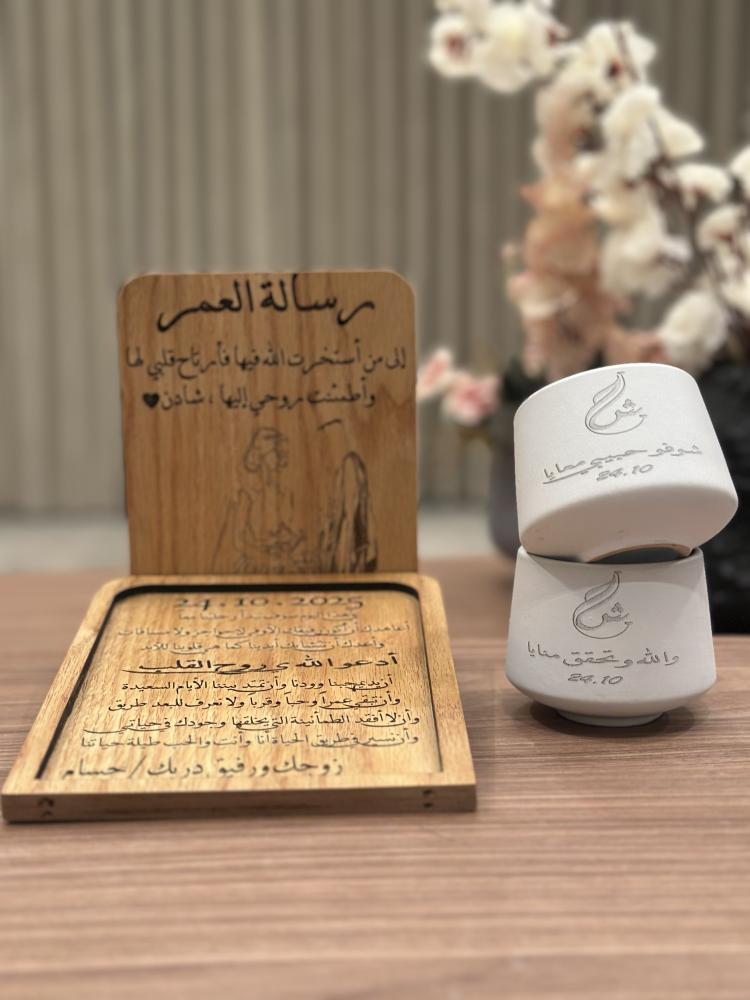 رسالة العمر
إلى من أستخرت الله فيها فأرتاح قلبي لها
وأطمئنت روحي إليها ، شادن ♥
24.10.2025
أدعو الله ي روح القلب
أن يديم بيننا الأيام السعيدة
وأن نبقى عمرا وحبا وقربا ولا نعرف للبعد طريق
وأن لا أفقد الطمأنينة التي يخلقها وجودك في حياتي
وأن نسير في طريق الحياة أنا وأنت والحب طيلة حياتنا
زوجك ورفيق دربك / حسام
شوفو حبيبي معايا
24.10
والله وتحقق منايا
24.10